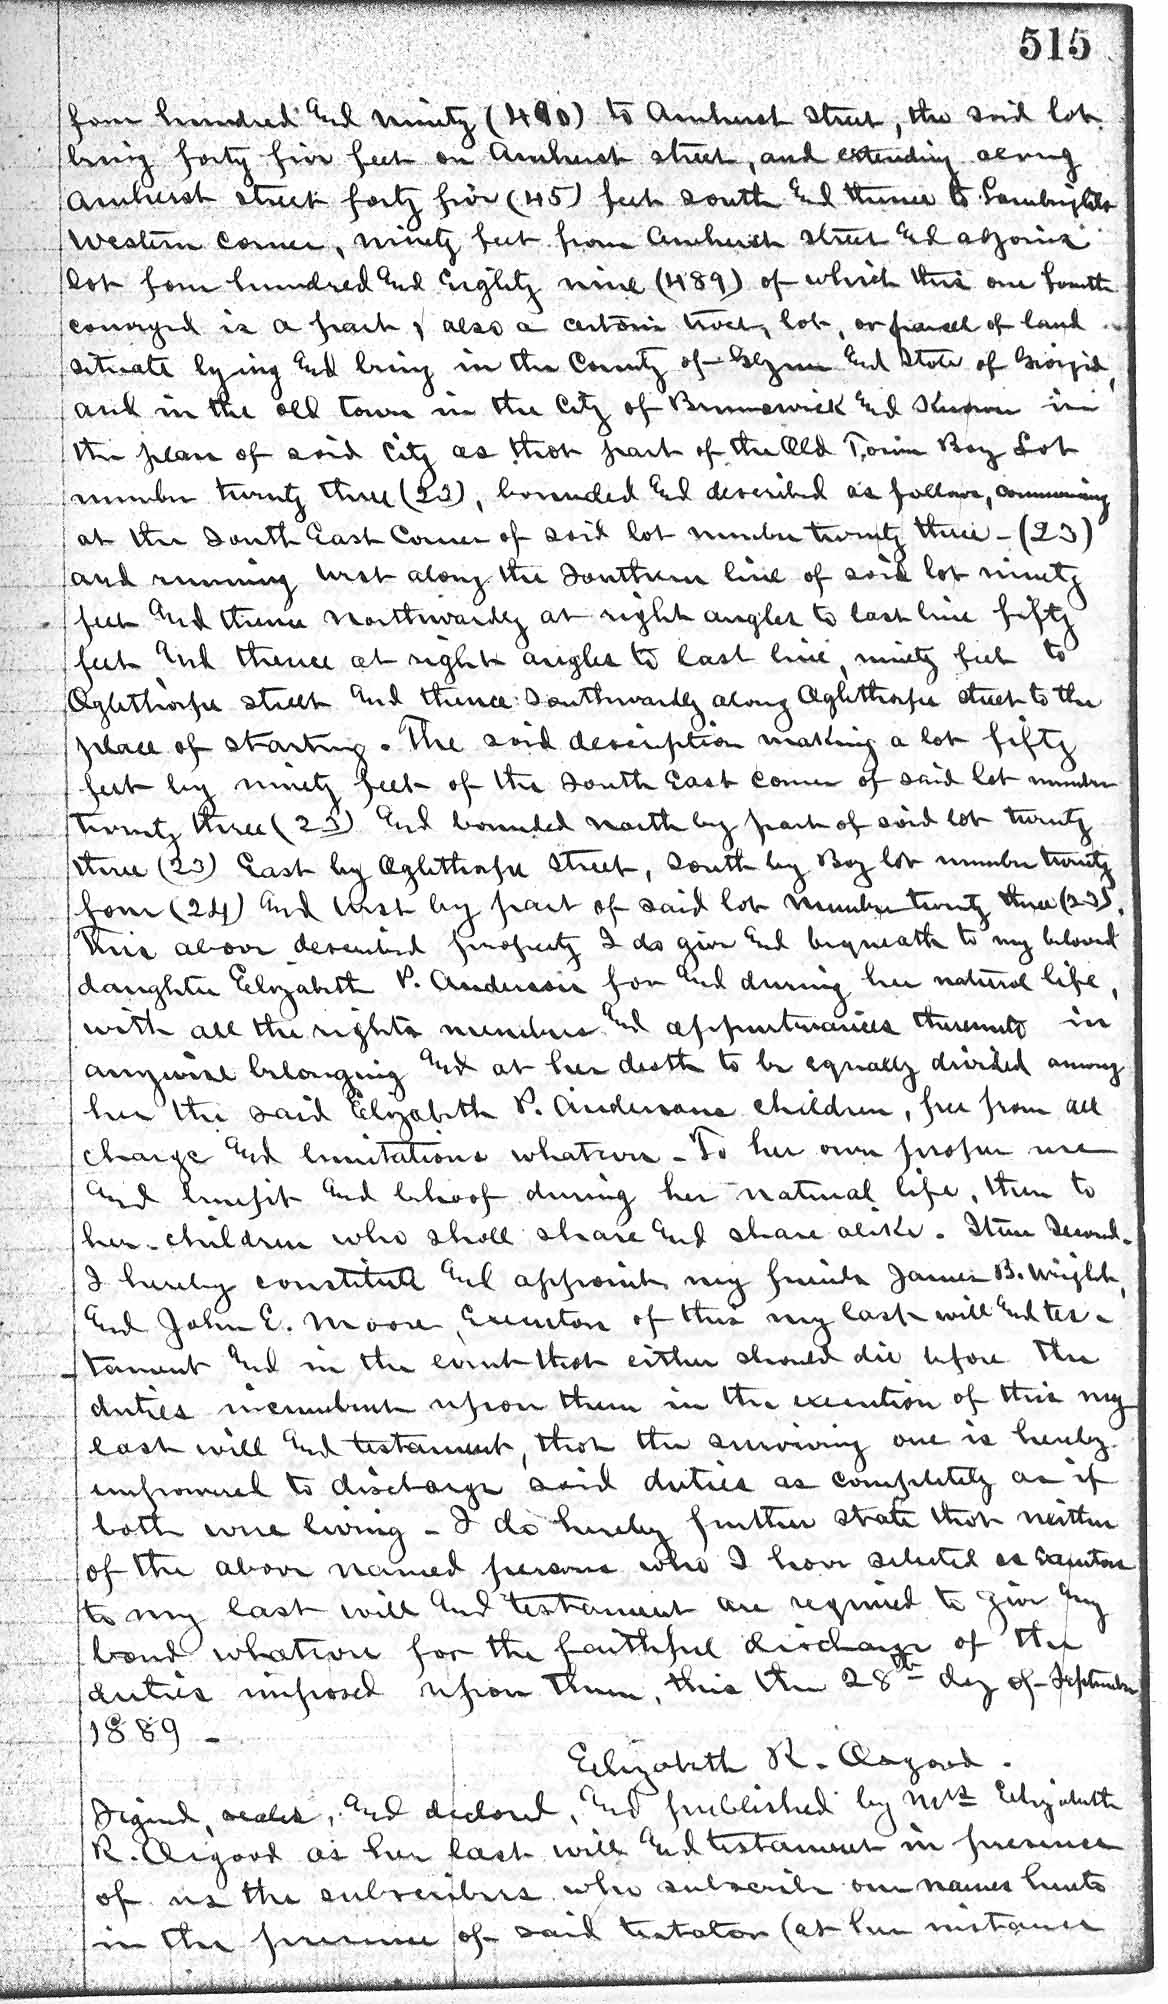 515
four hundred and ninety (490) to Amherst Street, the said lot
being forty five feet on Amherst street, and extending along
Amherst street forty five (45) feet south and thence to Lambrights
Western corner, ninety feet from Amherst street and adjoins
lot four hundred and Eighty nine (489) of which this one fourth
conveyed is a part, also a certain tract, lot, or parcel of land
situate lying and being in the County of Glynn and State of Georgia,
and in the old town in the City of Brunswick and Known in
the plan of said City as that part of the Old Town Bay Lot
number twenty three (23), bounded and described as follows, commencing
at the South East Corner of said lot number twenty three - (23)
and running West along the Southern line of said lot ninety
feet and thence Northwardly at right angles to last line fifty
feet and thence at right angles to last line, ninety feet to
Oglethorpe street and thence Southwardly along Oglethorpe street to the
place of starting. The said description making a lot fifty
feet by ninety feet of the South East corner of said lot number
twenty three (23) and bounded north by part of said lot twenty
three (23) East by Oglethorpe Street, South by Bay lot number twenty
four (24) and West by part of said lot number twenty three (23).
This above described property I do give and bequeath to my beloved
daughter Elizabeth P. Anderson for and during her natural life,
with all the rights members and appurtenances thereunto in
anywise belonging and at her death to be equally divided among
her the said Elizabeth P. Andersons children, free from all
charge and limitations whatever - To her own proper use
and benefit and behoof during her natural life, then to
her children who shall share and share alike. Item Second.
I hereby constitute and appoint my friends James B. Wright,
and John E. Moore, Executors of this my last will and tes-
tament and in the event that either should die before the
duties incumbent upon them in the execution of this my
last will and testament, that the surviving one is hereby
empowered to discharge said duties as completely as if
both were living - I do hereby further state that neither
of the above named persons who I have selected as Executors
to my last will and testament are required to give any
bond whatever for the faithful discharge of the
duties imposed upon them, this the 28th day of September
1889 -
Elizabeth R. Osgood.
Signed, sealed, and declared, and published by Mrs Elizabeth
R. Osgood as her last will and testament in presence
of us the subscribers who subscribe our names hereto
in the presence of said testator (at her instance